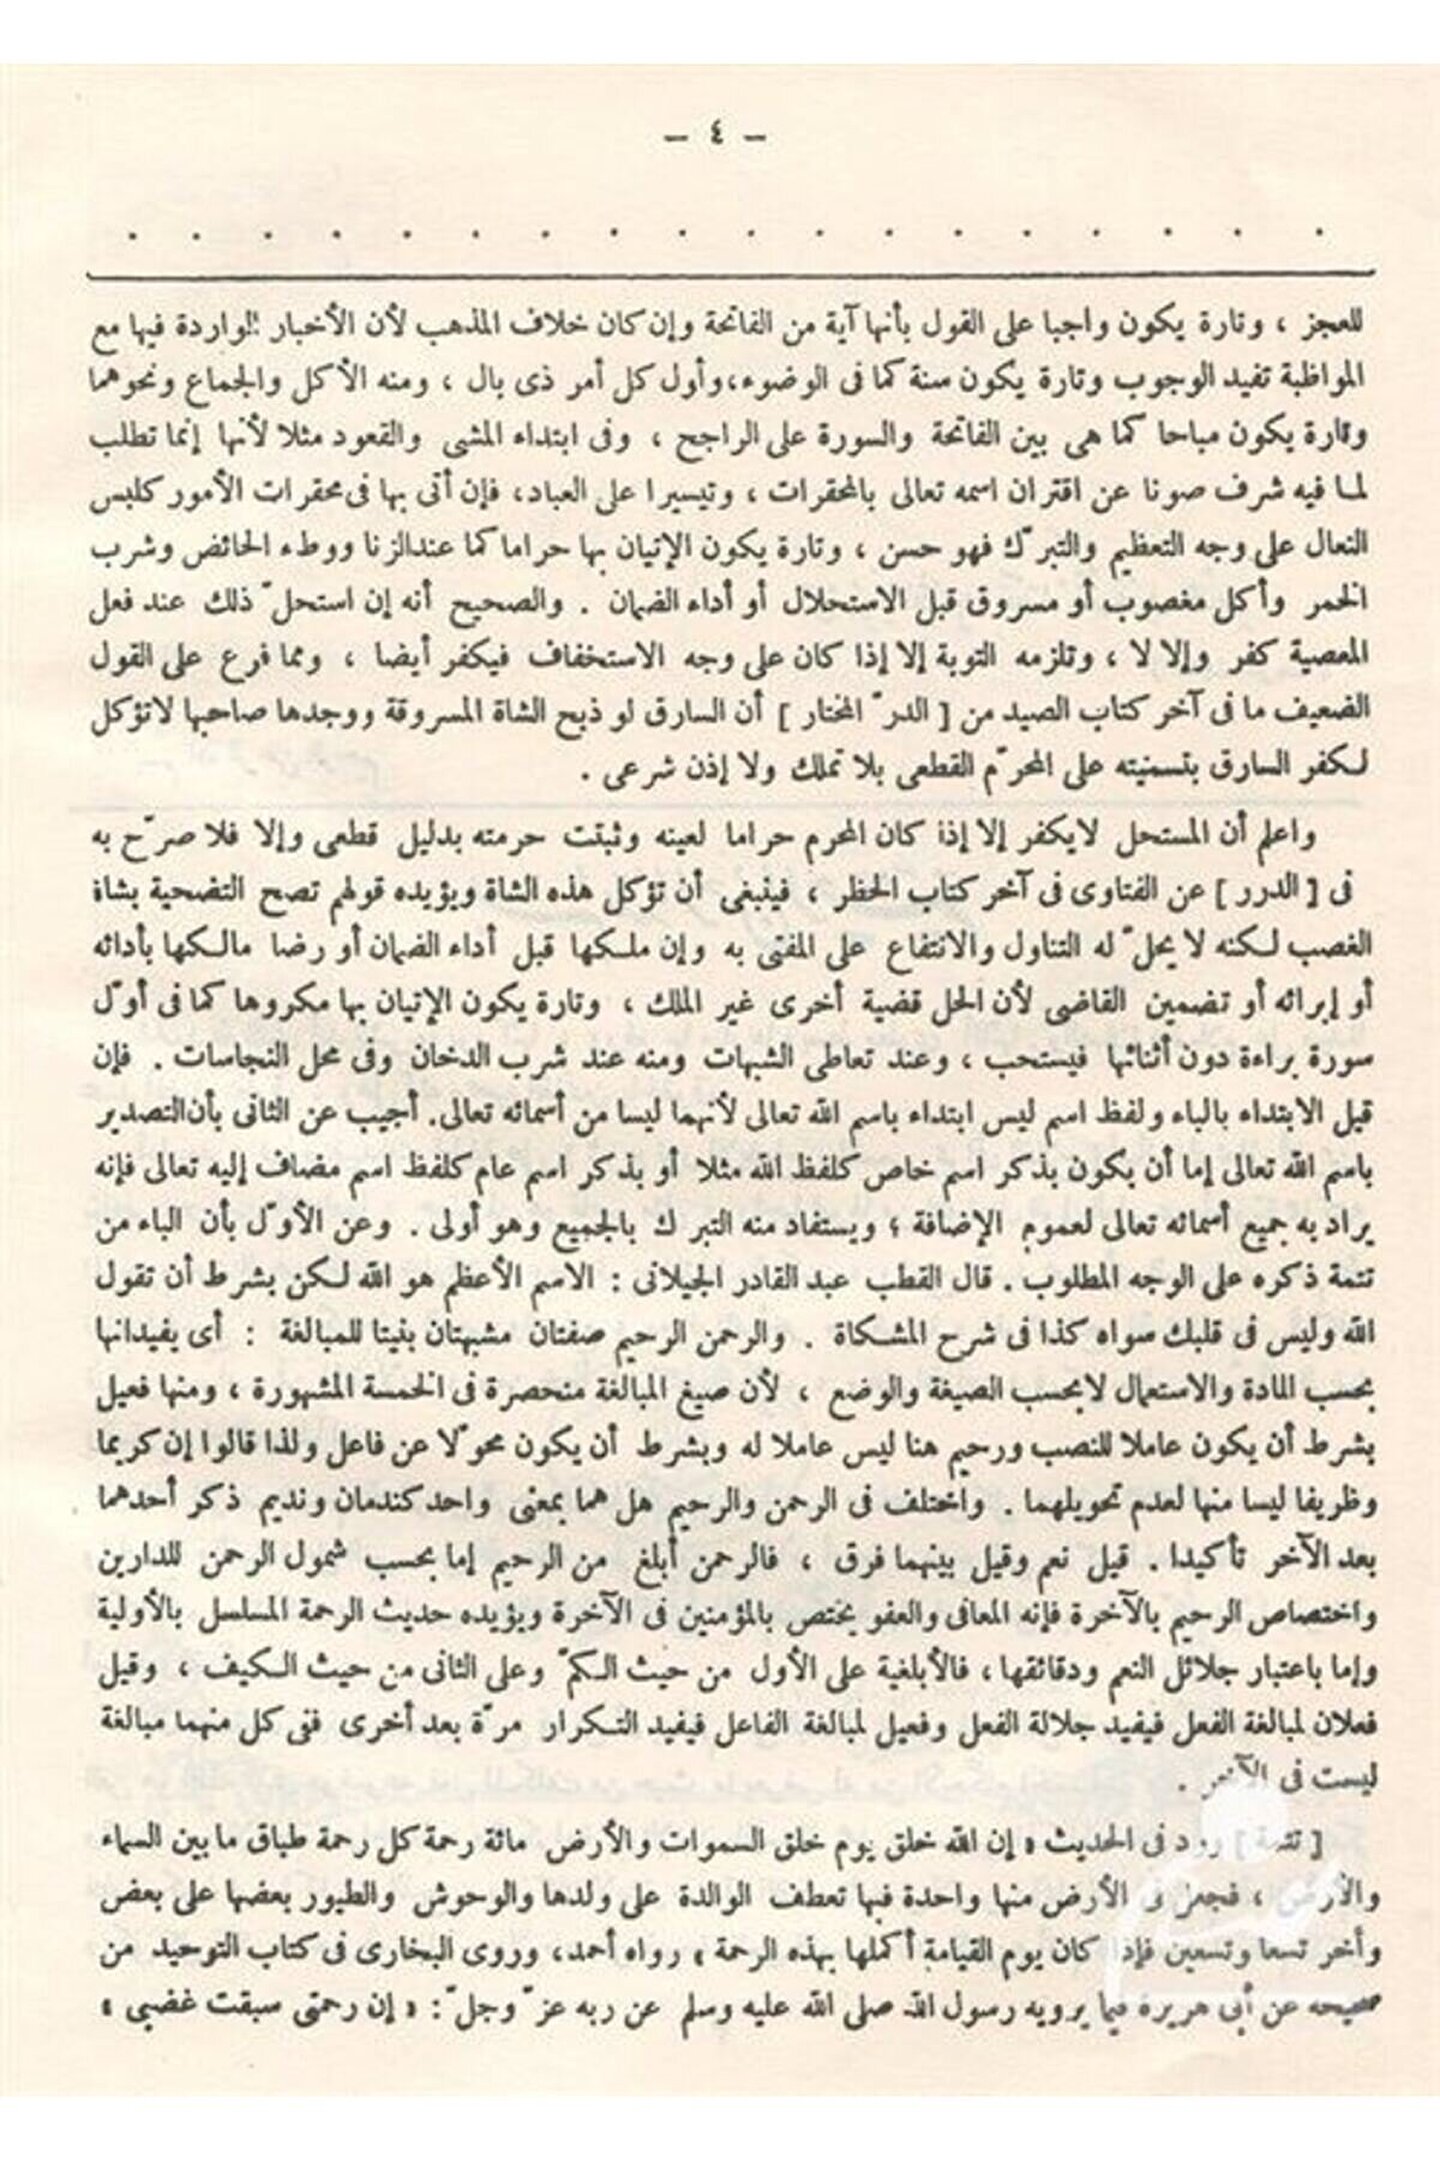 — ٤ —
. . . . . . . . . . . . . . . . . .
للعجز ، وتارة يكون واجبا على القول بأنها آية من الفاتحة وإن كان خلاف المذهب لأن الأخبار الواردة فيها مع
المواظبة تفيد الوجوب وتارة يكون سنة كما فى الوضوء، وأول كل أمر ذى بال ، ومنه الأكل والجماع ونحوهما
وتارة يكون مباحا كما هى بين الفاتحة والسورة على الراجح ، وفى ابتداء المشى والقعود مثلا لأنها إنما تطلب
لما فيه شرف صونا عن اقتران اسمه تعالى بالمحقرات ، وتيسيرا على العباد، فإن أتى بها فى محقرات الأمور كلبس
النعال على وجه التعظيم والتبرّك فهو حسن ، وتارة يكون الإتيان بها حراما كما عند الزنا ووطء الحائض وشرب
الخمر وأكل مغصوب أو مسروق قبل الاستحلال أو أداء الضمان . والصحيح أنه إن استحلّ ذلك عند فعل
المعصية كفر وإلا لا ، وتلزمه التوبة إلا إذا كان على وجه الاستخفاف فيكفر أيضا ، ومما فرع على القول
الضعيف ما فى آخر كتاب الصيد من [ الدرّ المختار ] أن السارق لو ذبح الشاة المسروقة ووجدها صاحبها لاتؤكل
لكفر السارق بتسميته على المحرّم القطعى بلا تملك ولا إذن شرعى .
واعلم أن المستحل لايكفر إلا إذا كان المحرم حراما لعينه وثبتت حرمته بدليل قطعى وإلا فلا صرّح به
فى [ الدرر ] عن الفتاوى فى آخر كتاب الحظر ، فينبغى أن تؤكل هذه الشاة ويؤيده قولهم تصح التضحية بشاة
الغصب لكنه لا يحلّ له التناول والانتفاع على المفتى به وإن ملكها قبل أداء الضمان أو رضا مالكها بأدائه
أو إبرائه أو تضمين القاضى لأن الحل قضية أخرى غير الملك ، وتارة يكون الإتيان بها مكروها كما فى أوّل
سورة براءة دون أثنائها فيستحب ، وعند تعاطى الشبهات ومنه عند شرب الدخان وفى محل النجاسات . فإن
قيل الابتداء بالباء ولفظ اسم ليس ابتداء باسم الله تعالى لأنهما ليسا من أسمائه تعالى. أجيب عن الثانى بأن التصدير
باسم الله تعالى إما أن يكون بذكر اسم خاص كلفظ الله مثلا أو بذكر اسم عام كلفظ اسم مضاف إليه تعالى فإنه
يراد به جميع أسمائه تعالى لعموم الإضافة ؛ ويستفاد منه التبرك بالجميع وهو أولى . وعن الأوّل بأن الباء من
تتمة ذكره على الوجه المطلوب . قال القطب عبد القادر الجيلانى : الاسم الأعظم هو الله لكن بشرط أن تقول
الله وليس فى قلبك سواه كذا فى شرح المشكاة . والرحمن الرحيم صفتان مشبهتان بنيتا للمبالغة : أى يفيدانها
بحسب المادة والاستعمال لابحسب الصيغة والوضع ، لأن صيغ المبالغة منحصرة فى الخمسة المشهورة ، ومنها فعيل
بشرط أن يكون عاملا للنصب ورحيم هنا ليس عاملا له وبشرط أن يكون محوّلا عن فاعل ولذا قالوا إن كريما
وظريفا ليسا منها لعدم تحويلهما . واختلف فى الرحمن والرحيم هل هما بمعنى واحد كندمان ونديم ذكر أحدهما
بعد الآخر تأكيدا . قيل نعم وقيل بينهما فرق ، فالرحمن أبلغ من الرحيم إما بحسب شمول الرحمن للدارين
واختصاص الرحيم بالآخرة فإنه المعافى والعفو يختص بالمؤمنين فى الآخرة ويؤيده حديث الرحمة المسلسل بالأولية
وإما باعتبار جلائل النعم ودقائقها ، فالأبلغية على الأول من حيث الكمّ وعلى الثانى من حيث الكيف ، وقيل
فعلان لمبالغة الفعل فيفيد جلالة الفعل وفعيل لمبالغة الفاعل فيفيد التكرار مرّة بعد أخرى ففى كل منهما مبالغة
ليست فى الآخر .
[ تتمة ] ورد فى الحديث « إن الله خلق يوم خلق السموات والأرض مائة رحمة كل رحمة طباق ما بين السماء
والأرض ، فجعل فى الأرض منها واحدة فبها تعطف الوالدة على ولدها والوحوش والطيور بعضها على بعض
وأخر تسعا وتسعين فإذا كان يوم القيامة أكملها بهذه الرحمة » رواه أحمد، وروى البخارى فى كتاب التوحيد من
صحيحه عن أبى هريرة فيما يرويه رسول الله صلى الله عليه وسلم عن ربه عزّ وجلّ : « إن رحمتى سبقت غضبى »